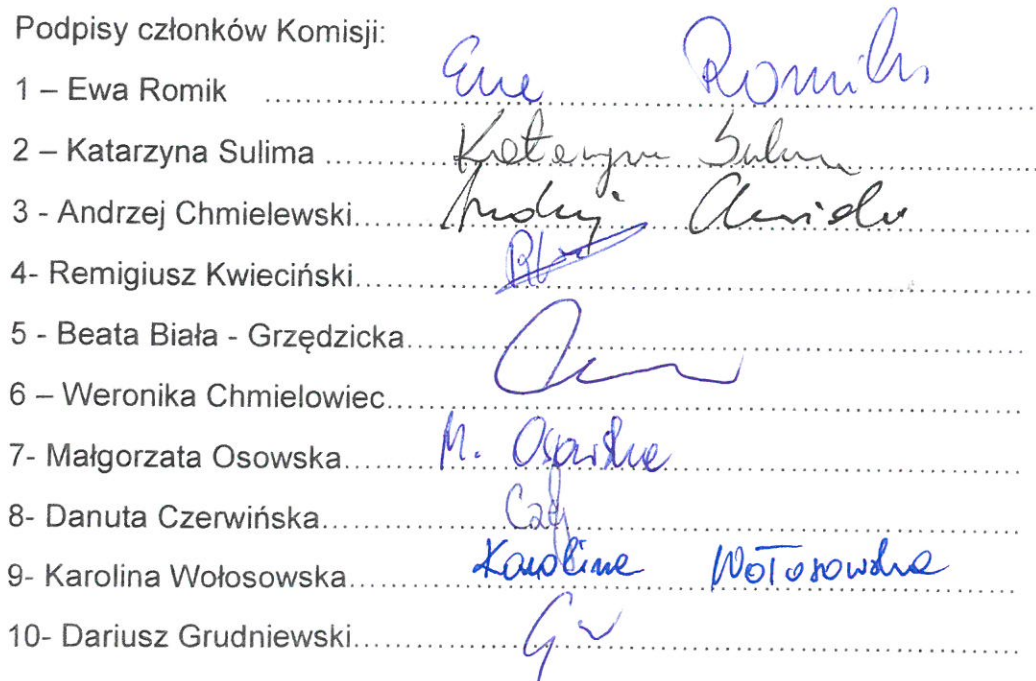 Podpisy członków Komisji:
1 – Ewa Romik .......... Ewa Romik
2 – Katarzyna Sulima .......... Katarzyna Sulima
3 - Andrzej Chmielewski .......... Andrzej
4- Remigiusz Kwieciński ..........
5 - Beata Biała - Grzędzicka ..........
6 – Weronika Chmielowiec ..........
7- Małgorzata Osowska .......... M. Osowska
8- Danuta Czerwińska ..........
9- Karolina Wołosowska .......... Karolina Wołosowska
10- Dariusz Grudniewski ..........